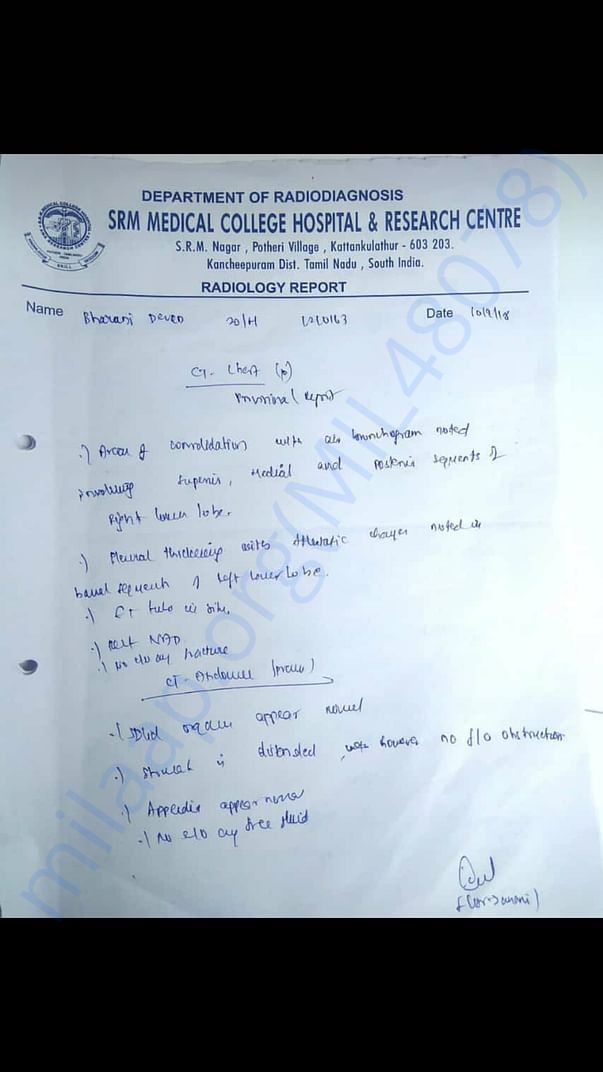 DEPARTMENT OF RADIODIAGNOSIS
SRM MEDICAL COLLEGE HOSPITAL & RESEARCH CENTRE
S.R.M. Nagar , Potheri Village , Kattankulathur - 603 203.
Kancheepuram Dist. Tamil Nadu , South India.
RADIOLOGY REPORT
Name Bharani Date 10/9/18
CT- Chest (p)
Provisional report
·) Areas of consolidation with air bronchogram noted
involving superior, medial and posterior segments of
Right lower lobe.
·) Pleural thickening with Atelectatic changes noted in
basal segment of left lower lobe.
·) ET tube in situ.
·) Rest NAD
·) No e/o any fracture
CT- Abdomen
·) Solid organs appear normal
·) Stomach is distended, however no f/o obstruction
·) Appendix appear normal
·) No e/o any free fluid
milaap.org(MIL48078)